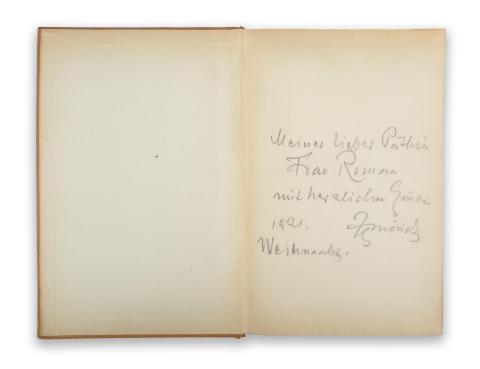 Meiner lieben Patin
Frau
mit herzlichen Grüßen
1921.
Weihnacht.